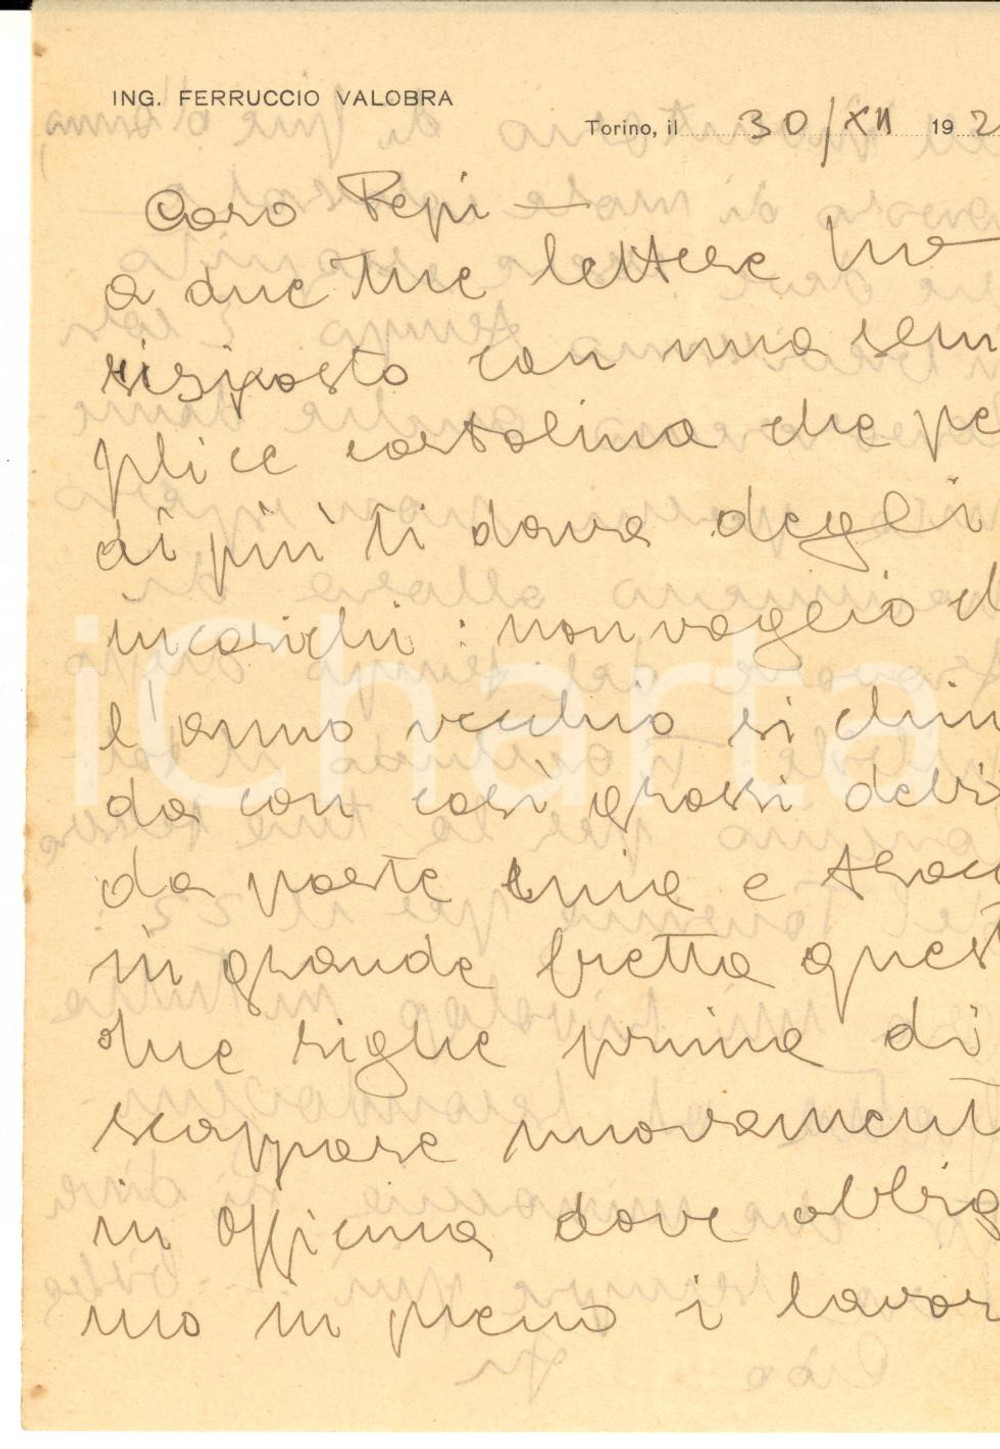 ING. FERRUCCIO VALOBRA
Torino, il 30/XII 192
Caro Pepi —
a due tue lettere ho
risposto con una sem
plice cartolina che pe
di più ti dava degli
incarichi : non voglio c
l'anno vecchio si chiu
da con così grossi debi
da parte mia e traccio
in grande fretta quest
due righe prima di
scappare nuovament
in Officina dove abbia
mo in pieno i lavor
iCharta